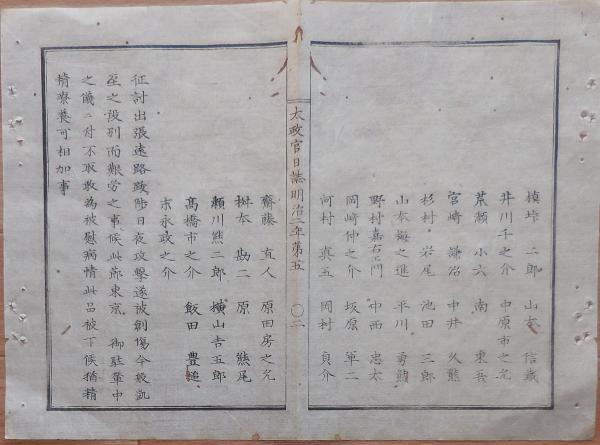 槙峠 二郎 山本 信蔵
井川千之介 中原市之允
荒瀬 小六 南 東吾
宮崎 謙治 中井 久熊
杉村 岩尾 池田 三郎
山本梅之進 平川 勇
野村嘉右エ門 中西 忠太
岡崎仲之介 坂原 軍二
河村 真五 岡村 貞介
太政官日誌明治二年第五 〇二
齋藤 直人 原田房之允
桝本 勘二 原 熊尾
瀬川熊二郎 横山吉五郎
髙橋市之介 飯田 豊
末永政之介
征討出張遠路跋渉日夜攻撃遂被創傷今般凱
至之段別而艱労之事候此節東京 御駐輦中
之儀ニ付不取敢為被慰病情此品被下候猶精
精療養可相加事